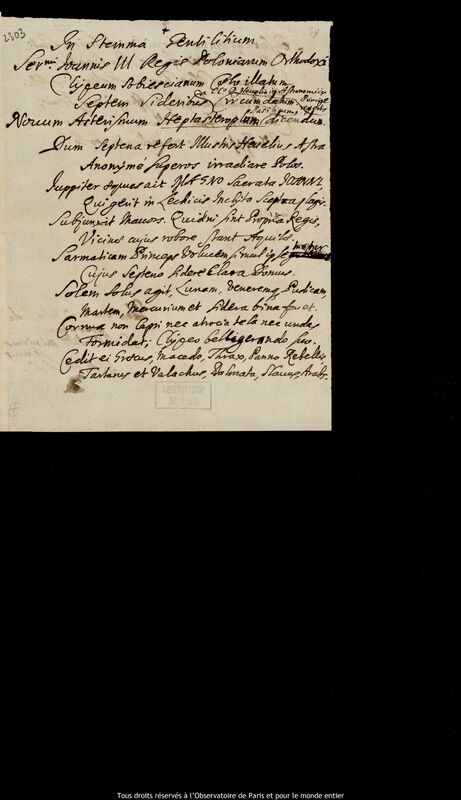 2303
39
In Stemma Gentilitium
Ser.mi Joannis III Regis Poloniarum Orthodoxi
Clypeum Sobiescianum
Septem Sideribus Circumdatum
Novum Asterismum Heptasteroplum dicendum.
Dum Septena refert Illustris Hevelius Astra
Anonyme superos irradiare Polos.
Juppiter aequus ait MAGNO Sacrata JOANNI,
Qui gerit in Lechicis Inclyta Sceptra plagis.
Subjunxit Mavors. Quidni sint Propria Regis,
Vicinae cujus robore stant Aquilae.
Sarmatiam Princeps
Cujus Septeno sidere Clara Domus.
Solem Solus agit, Lunam, Veneremq Pudicam,
Martem, Mercurium et sidera bina fovet.
Cornua non Capri nec atrocia tela nec undas
Formidat; Clypeo belligerando suo.
Cedit ei Graecus, Macedo, Thrax, Panno Rebellis,
Tartarus et Valachus, Dalmata, Slavus, Arabs.
OBSERVATOIRE
DE PARIS
Tous droits réservés à l'Observatoire de Paris et pour le monde entier